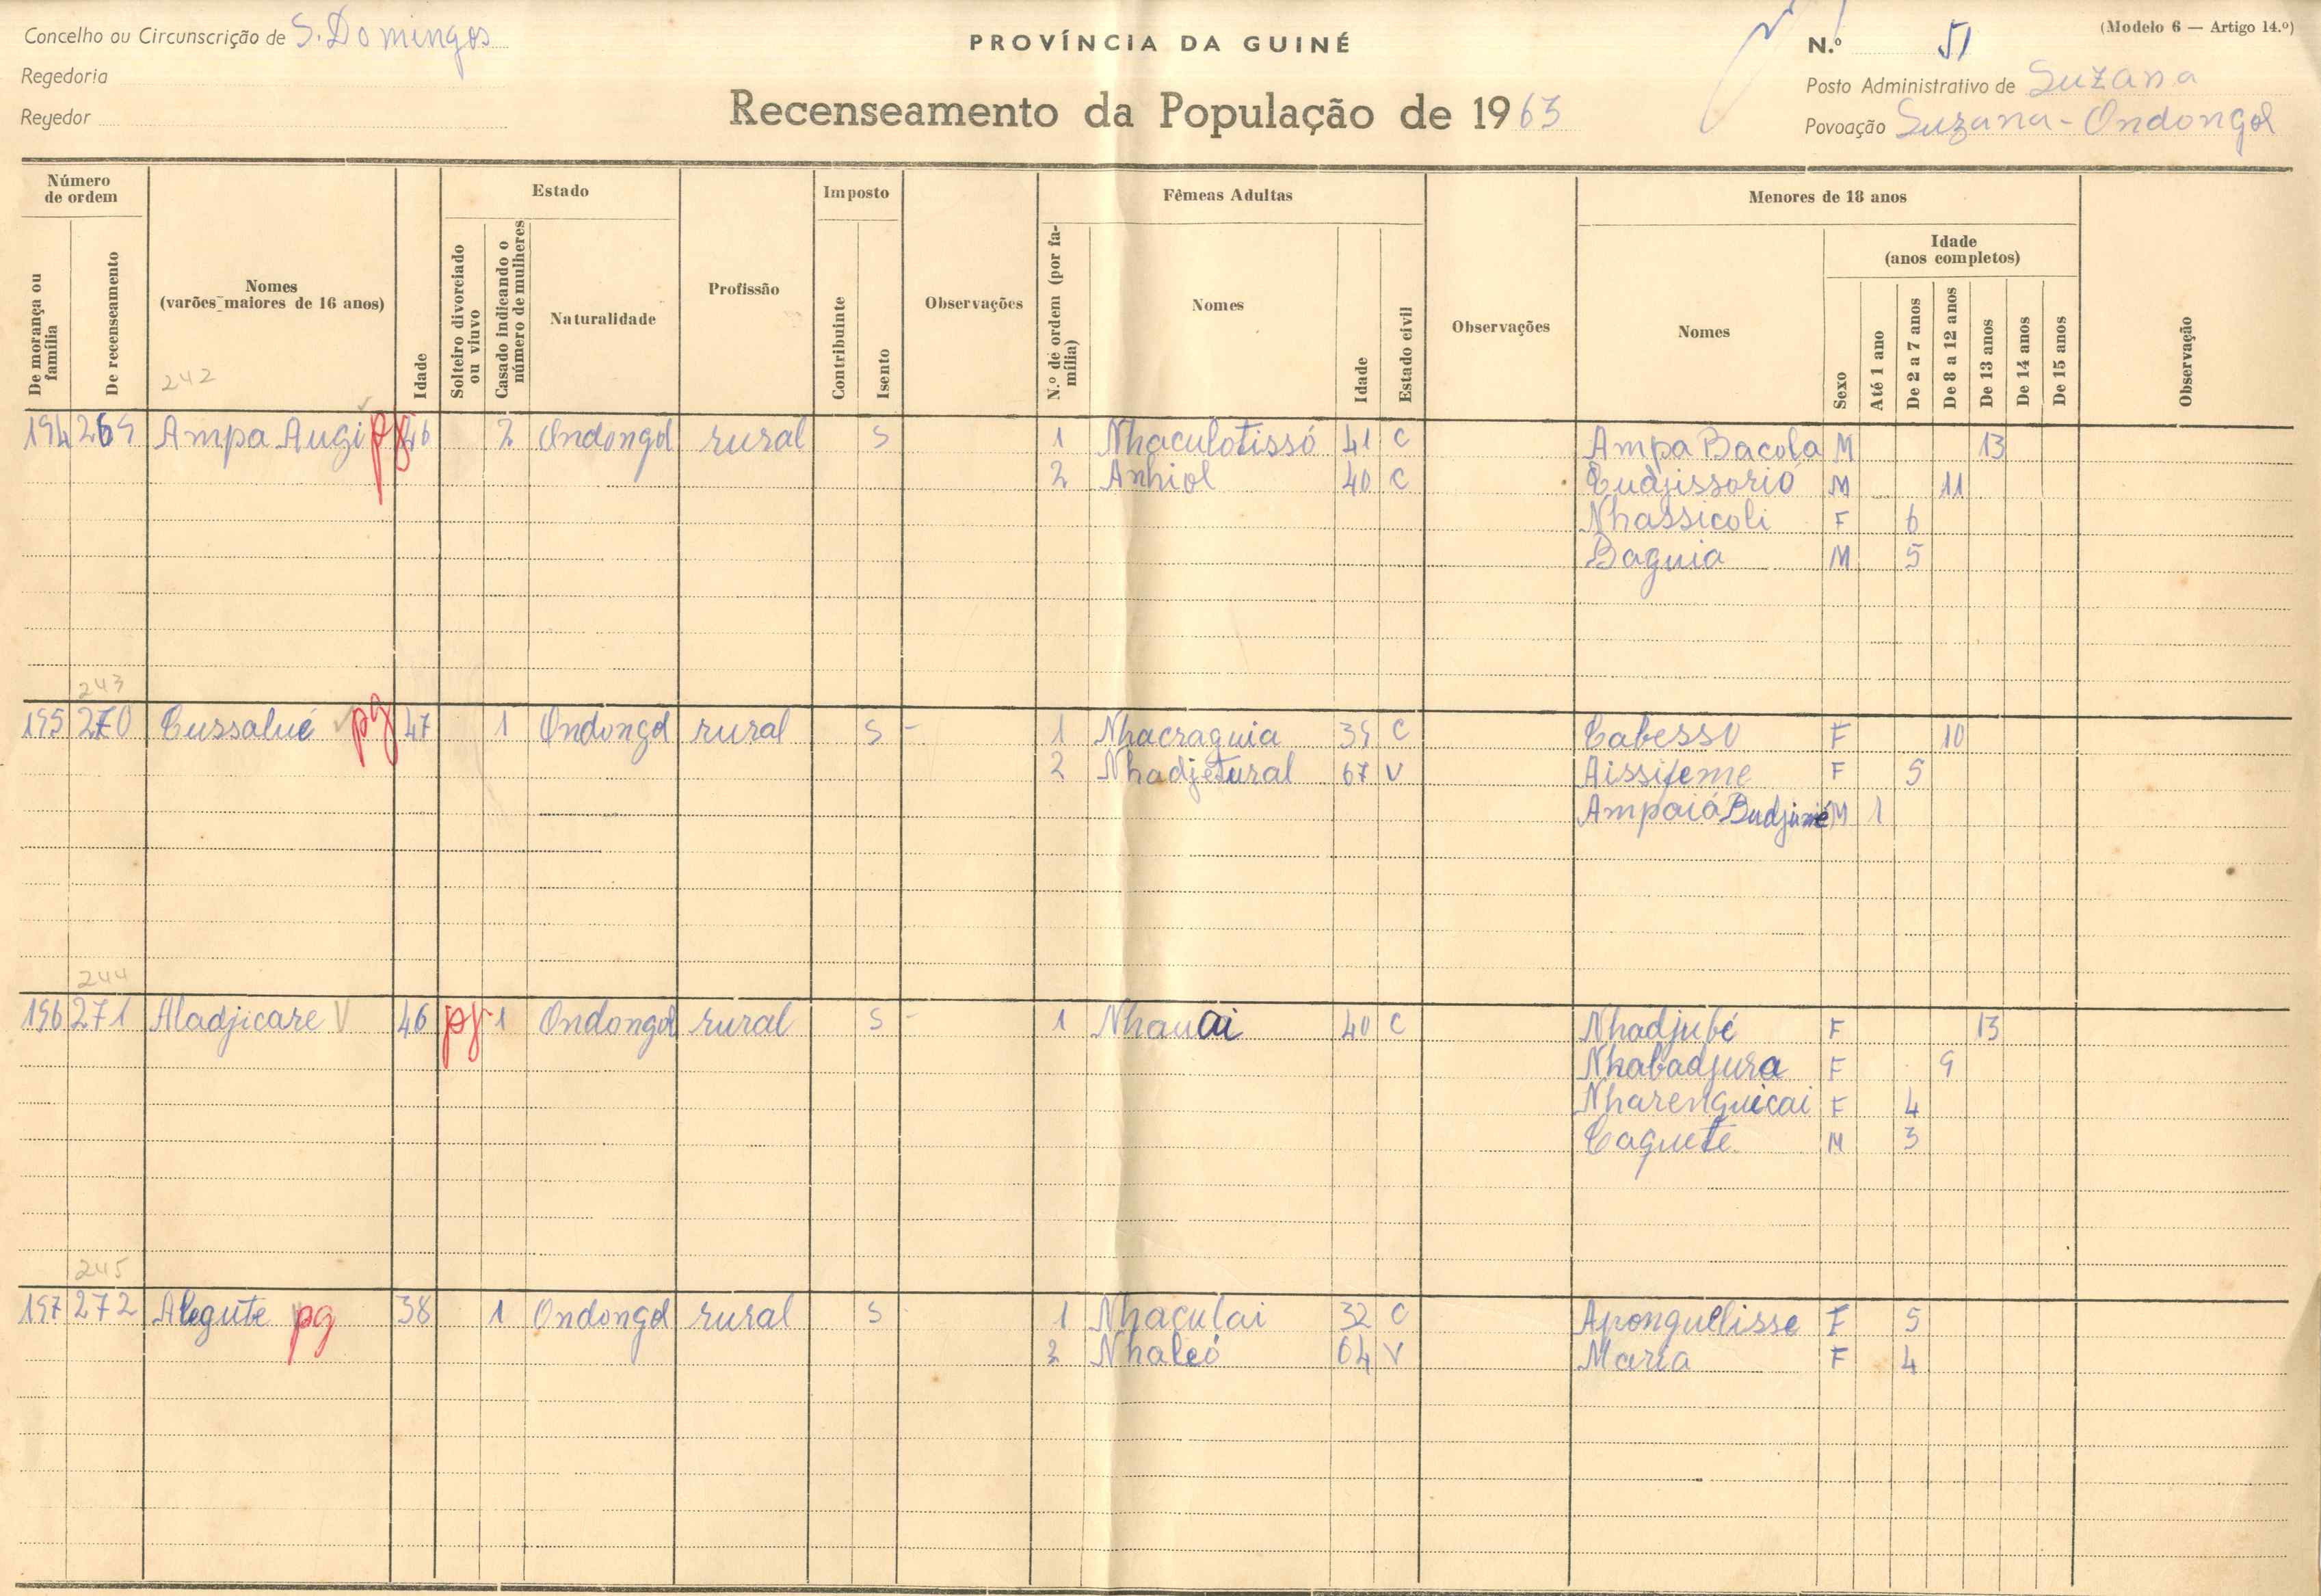 Concelho ou Circunscrição de S. Domingos
Regedoria
Reyedor
PROVÍNCIA DA GUINÉ
Recenseamento da População de 1963
(Modelo 6 — Artigo 14.º)
N.º 51
Posto Administrativo de Suzana
Povoação Suzana - Ondongol
Número de ordem
De morança ou família
De recenseamento
Nomes (varões maiores de 16 anos)
Idade
Estado
Solteiro divorciado ou viuvo
Casado indicando o número de mulheres
Naturalidade
Profissão
Imposto
Contribuinte
Isento
Observações
Fêmeas Adultas
N.º de ordem (por família)
Nomes
Idade
Estado civil
Observações
Menores de 18 anos
Nomes
Idade (anos completos)
Sexo
Até 1 ano
De 2 a 7 anos
De 8 a 12 anos
De 13 anos
De 14 anos
De 15 anos
Observação
242
194 269 Ampa Augi pg 46 2 Ondongol rural S 1 Nhaculotissó 41 C Ampa Bacola M 13
2 Anhiol 40 C Cudjissorió M 11
Nhassicoli F 6
Baguia M 5
243
195 270 Cussalué pg 47 1 Ondongol rural S - 1 Nhacraguia 39 C Cabesso F 10
2 Nhadjetural 67 V Aissifeme F 5
Ampaiá M 1
244
196 271 Aladjicare V 46 pg 1 Ondongol rural S - 1 Nhauai 40 C Nhadjubé F 13
Nhabadjura F 9
Nharenguicai F 4
Caquete M 3
245
197 272 Alegute pg 38 1 Ondongol rural S 1 Nhaculai 32 C Aponguelisse F 5
2 Nhaleó 64 V Maria F 4